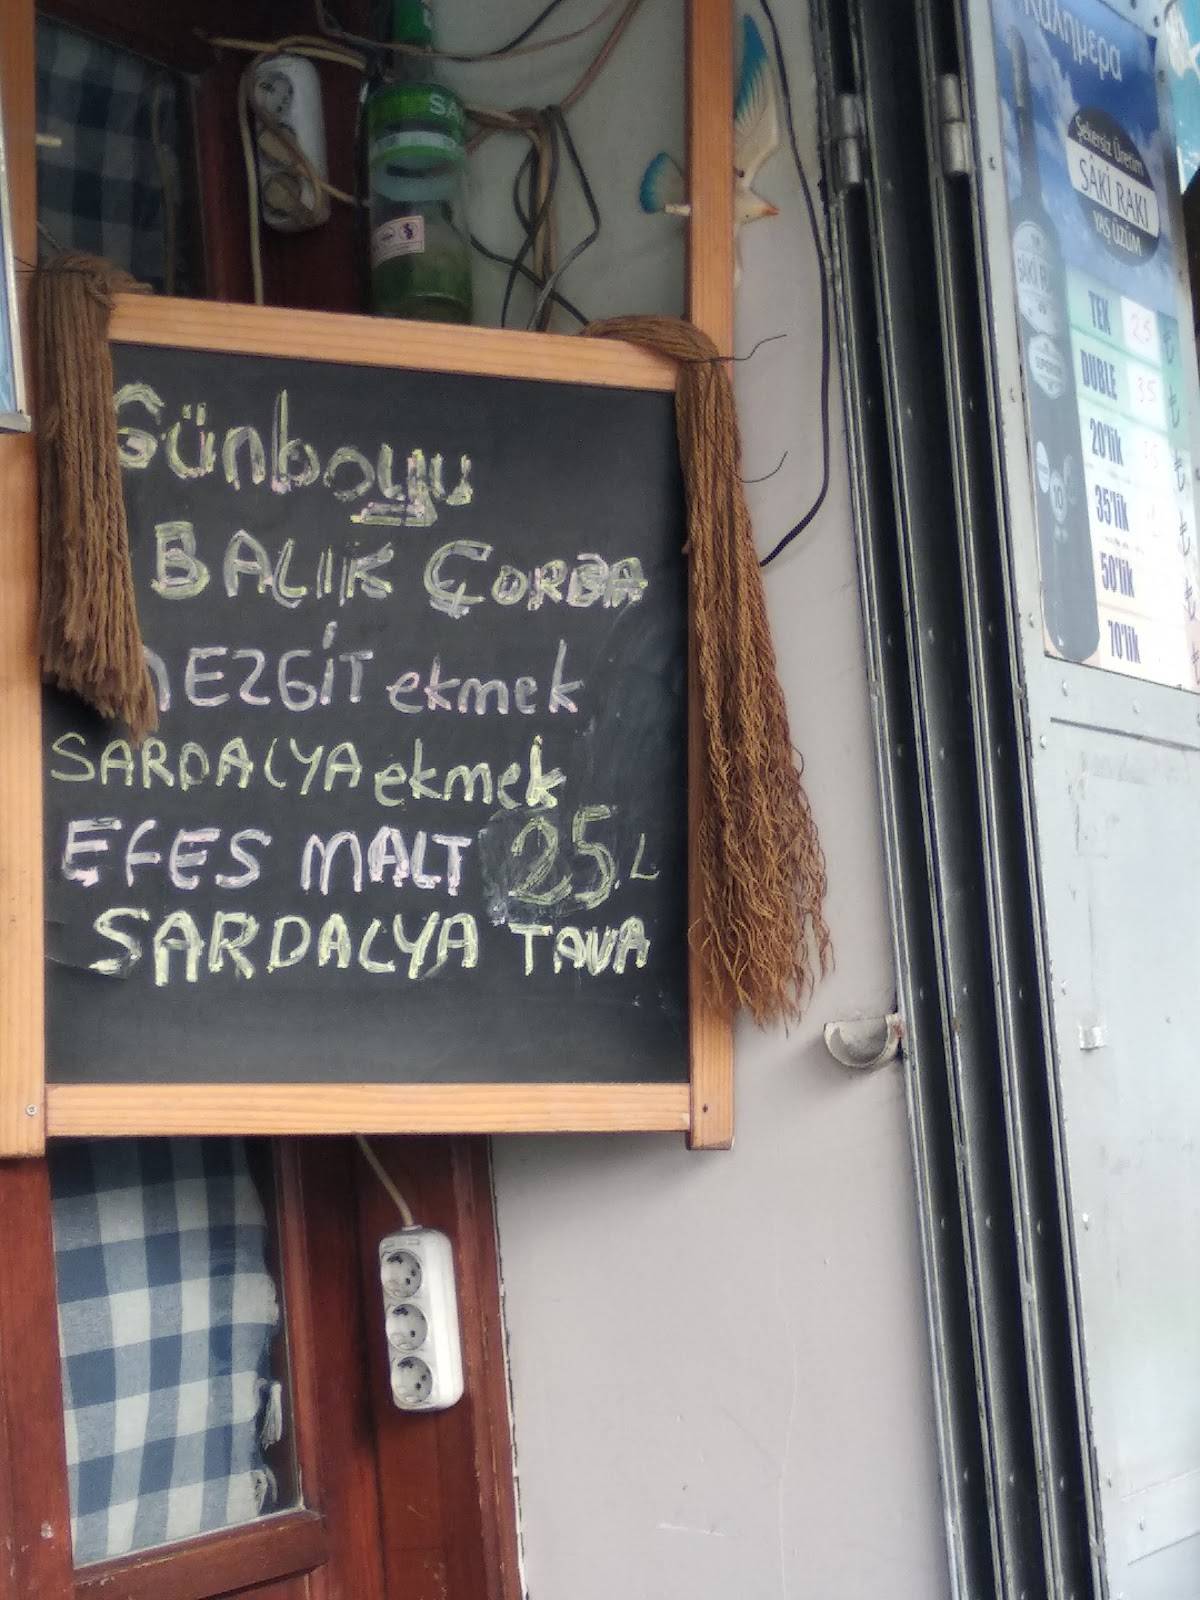 Günboyu
BALIK ÇORBA
MEZGİT ekmek
SARDALYA ekmek
EFES MALT 25.L
SARDALYA TAVA
καλημέρα
Şekersiz Üretim
SÂKİ RAKI
YAŞ ÜZÜM
TEK 25 ₺
DUBLE 35 ₺
20'lik
35'lik
50'lik
70'lik